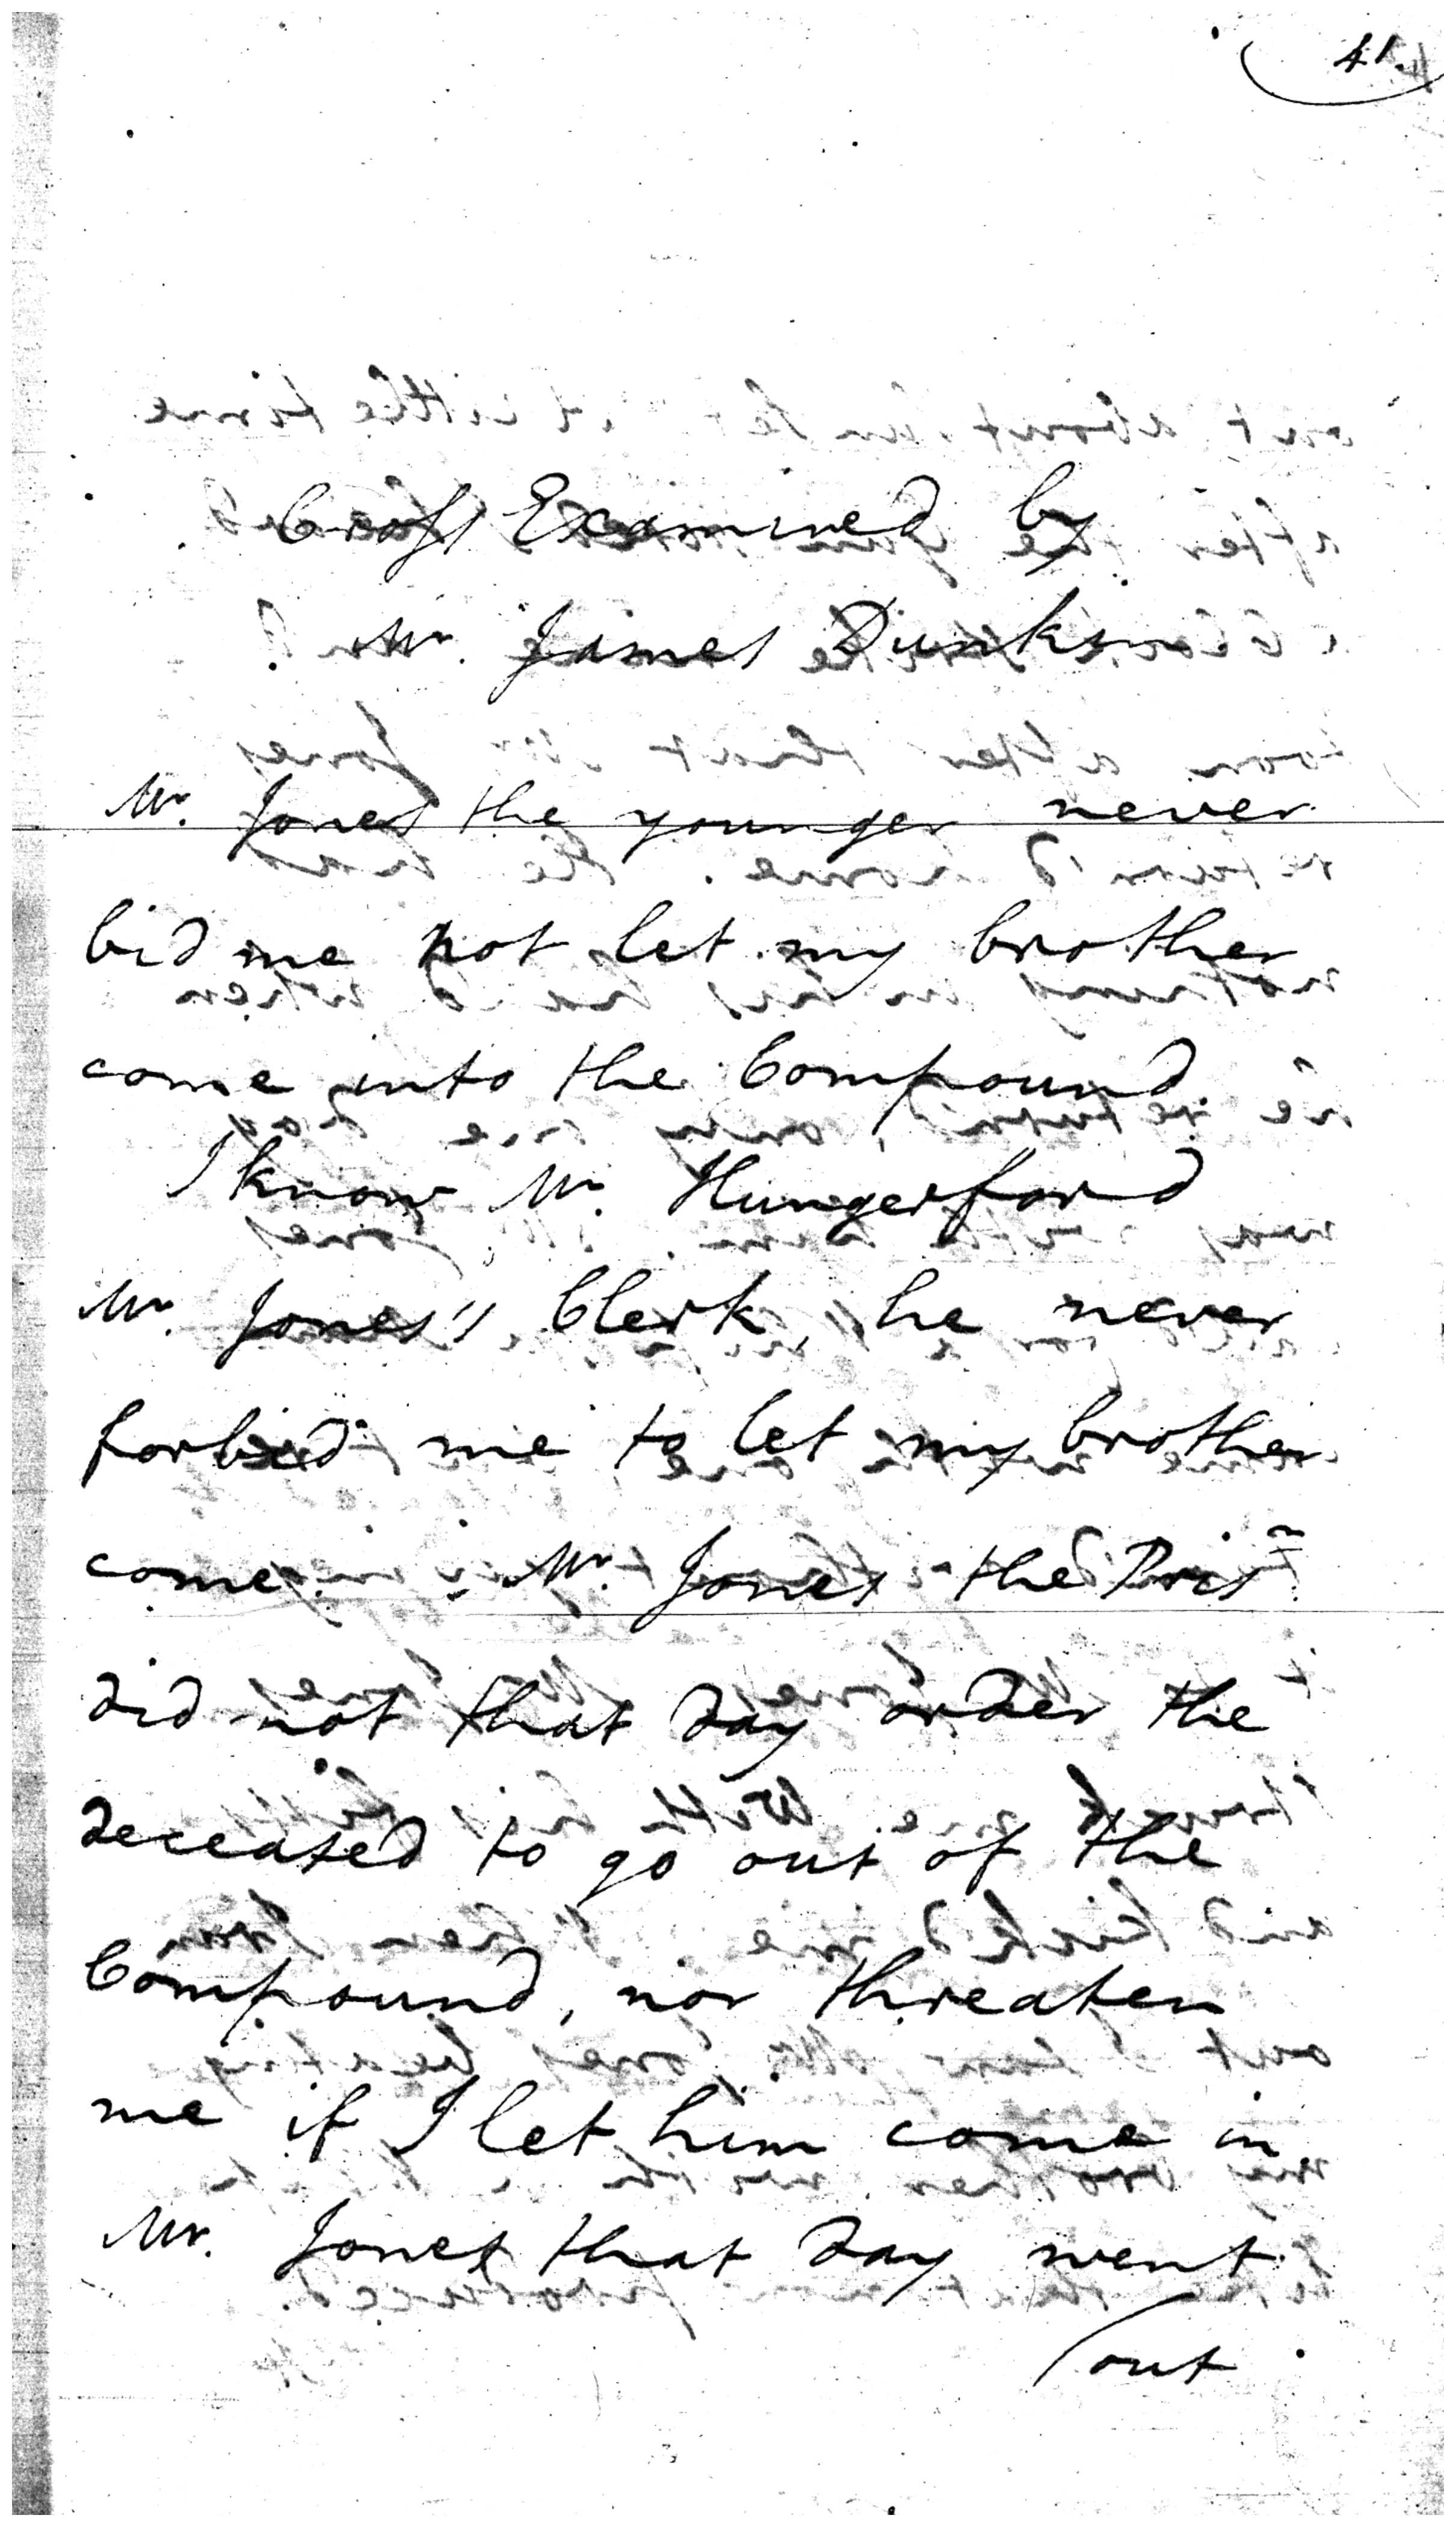 41.
Cross Examined by
Mr. James Dunkin
Mr. Jones the younger never
bid me not let my brother
come into the Compound
I know Mr. Hungerford
Mr. Jones's Clerk, he never
forbid me to let my brother
come. Mr. Jones the Prisr
did not that day order the
deceased to go out of the
Compound, nor threaten
me if I let him come in
Mr. Jones that day went
out